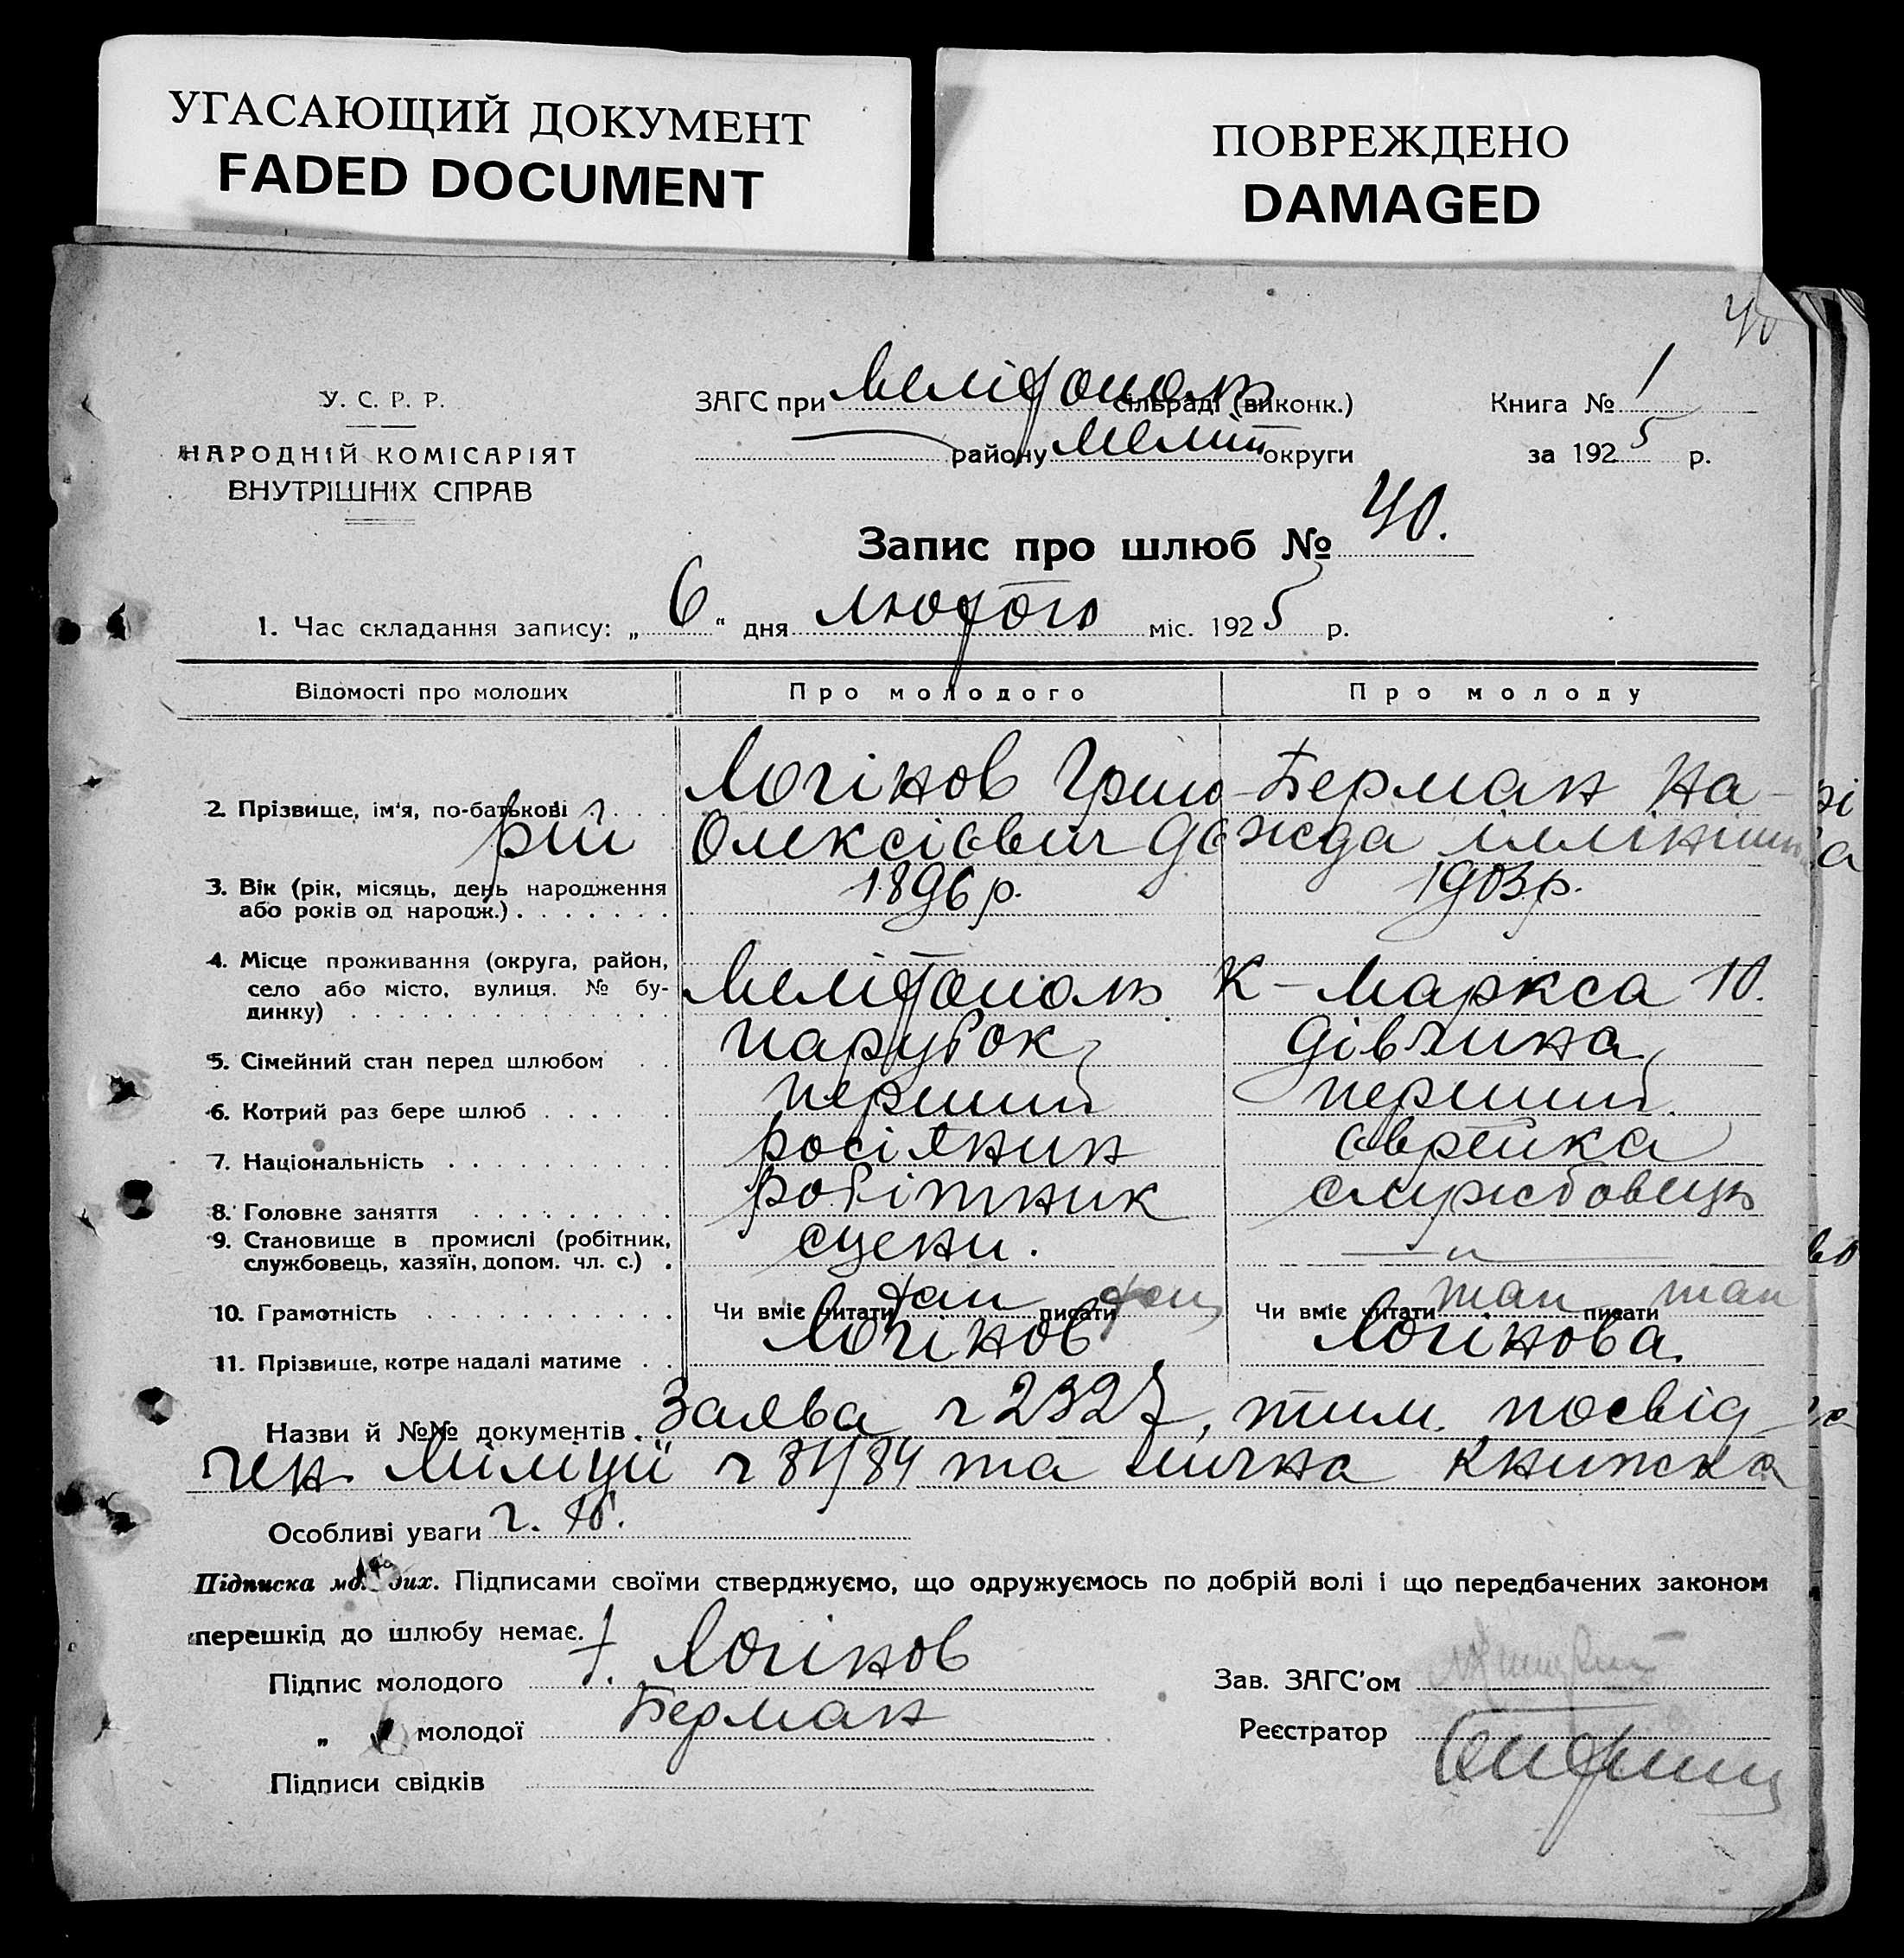 УГАСАЮЩИЙ ДОКУМЕНТ
FADED DOCUMENT
ПОВРЕЖДЕНО
DAMAGED
40
У. С. Р. Р.
НАРОДНІЙ КОМІСАРІЯТ
ВНУТРІШНІХ СПРАВ
ЗАГС при Мелітополь сільраді (виконк.)
району Меліт округи
Книга № 1
за 1925 р.
Запис про шлюб № 40.
1. Час складання запису: „6“ дня лютого міс. 1925 р.
Відомості про молодих Про молодого Про молоду
2. Прізвище, ім'я, по-батькові
Логінов Григо- Берман На-
рій Олексієвич дежда
3. Вік (рік, місяць, день народження
або років од народж.)
1896 р. 1903 р.
4. Місце проживання (округа, район,
село або місто, вулиця. № бу-
динку)
Мелітополь К-Маркса 10.
5. Сімейний стан перед шлюбом парубок дівчина
6. Котрий раз бере шлюб перший перший
7. Національність росіянин єврейка
8. Головне заняття робітник службовець
9. Становище в промислі (робітник,
службовець, хазяїн, допом. чл. с.)
сцени. — „ —
10. Грамотність Чи вміє читати так писати так Чи вміє читати так писати так
11. Прізвище, котре надалі матиме Логінов Логінова
Назви й №№ документів. Заява ч 2327, тим. посвід
чен Міліції ч 84/84 та книжка
Особливі уваги ч. 10.
Підписка молодих. Підписами своїми стверджуємо, що одружуємось по добрій волі і що передбачених законом
перешкід до шлюбу немає.
Підпис молодого Логінов
„ молодої Берман
Підписи свідків
Зав. ЗАГС'ом
Реєстратор